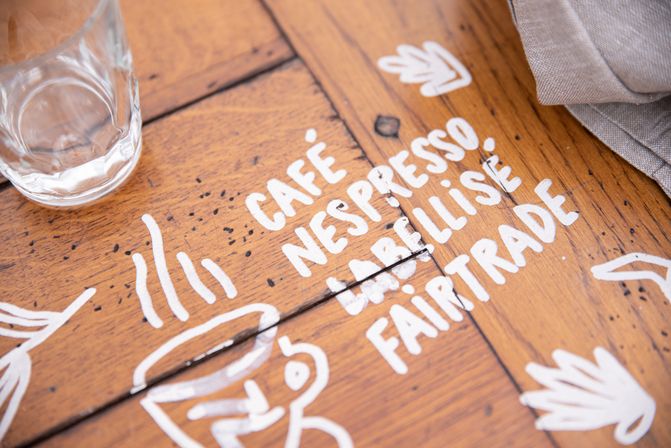 CAFÉ
NESPRESSO
LABELLISÉ
FAIRTRADE